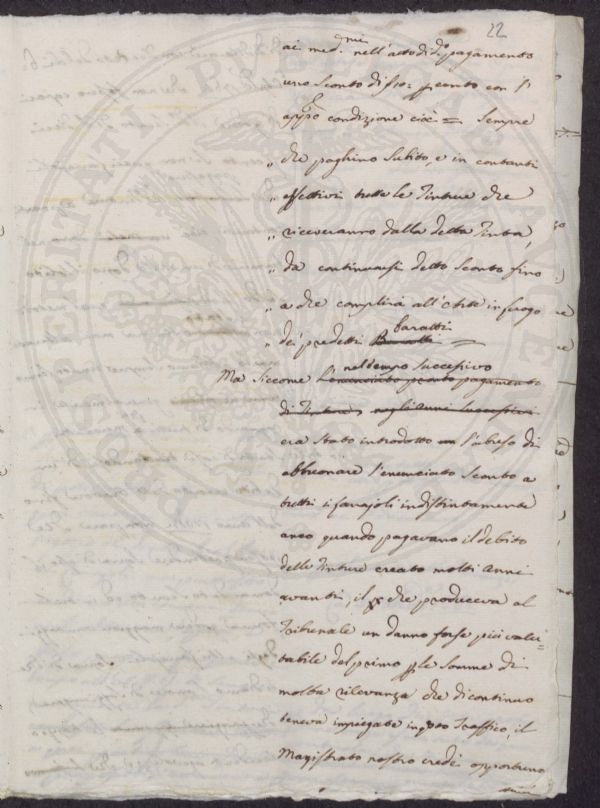 22
ai med.mi nell'atto di do pagamento
uno Sconto di per cento con l'
appo condizione cioè = Sempre
„ che paghino Subito, e in contanti
„ effettivi tutte le Tinture che
„ riceveranno dalla detta Tinta,
„ da continuarsi detto Sconto fino
„ a che complirà all'Arte in luogo
„ dei predetti baratti =
Ma Siccome nel tempo Successivo
era Stato introdotto l'abuso di
abbuonare l'enunciato Sconto a
tutti i lanajoli indistintamente
anco quando pagavano il debito
delle Tinture creato molti Anni
avanti, il che produceva al
Tribunale un danno forse più valu=
tabile del primo per le Somme di
molta rilevanza che di continuo
teneva impiegate in questo Traffico, il
Magistrato nostro credè opportuno